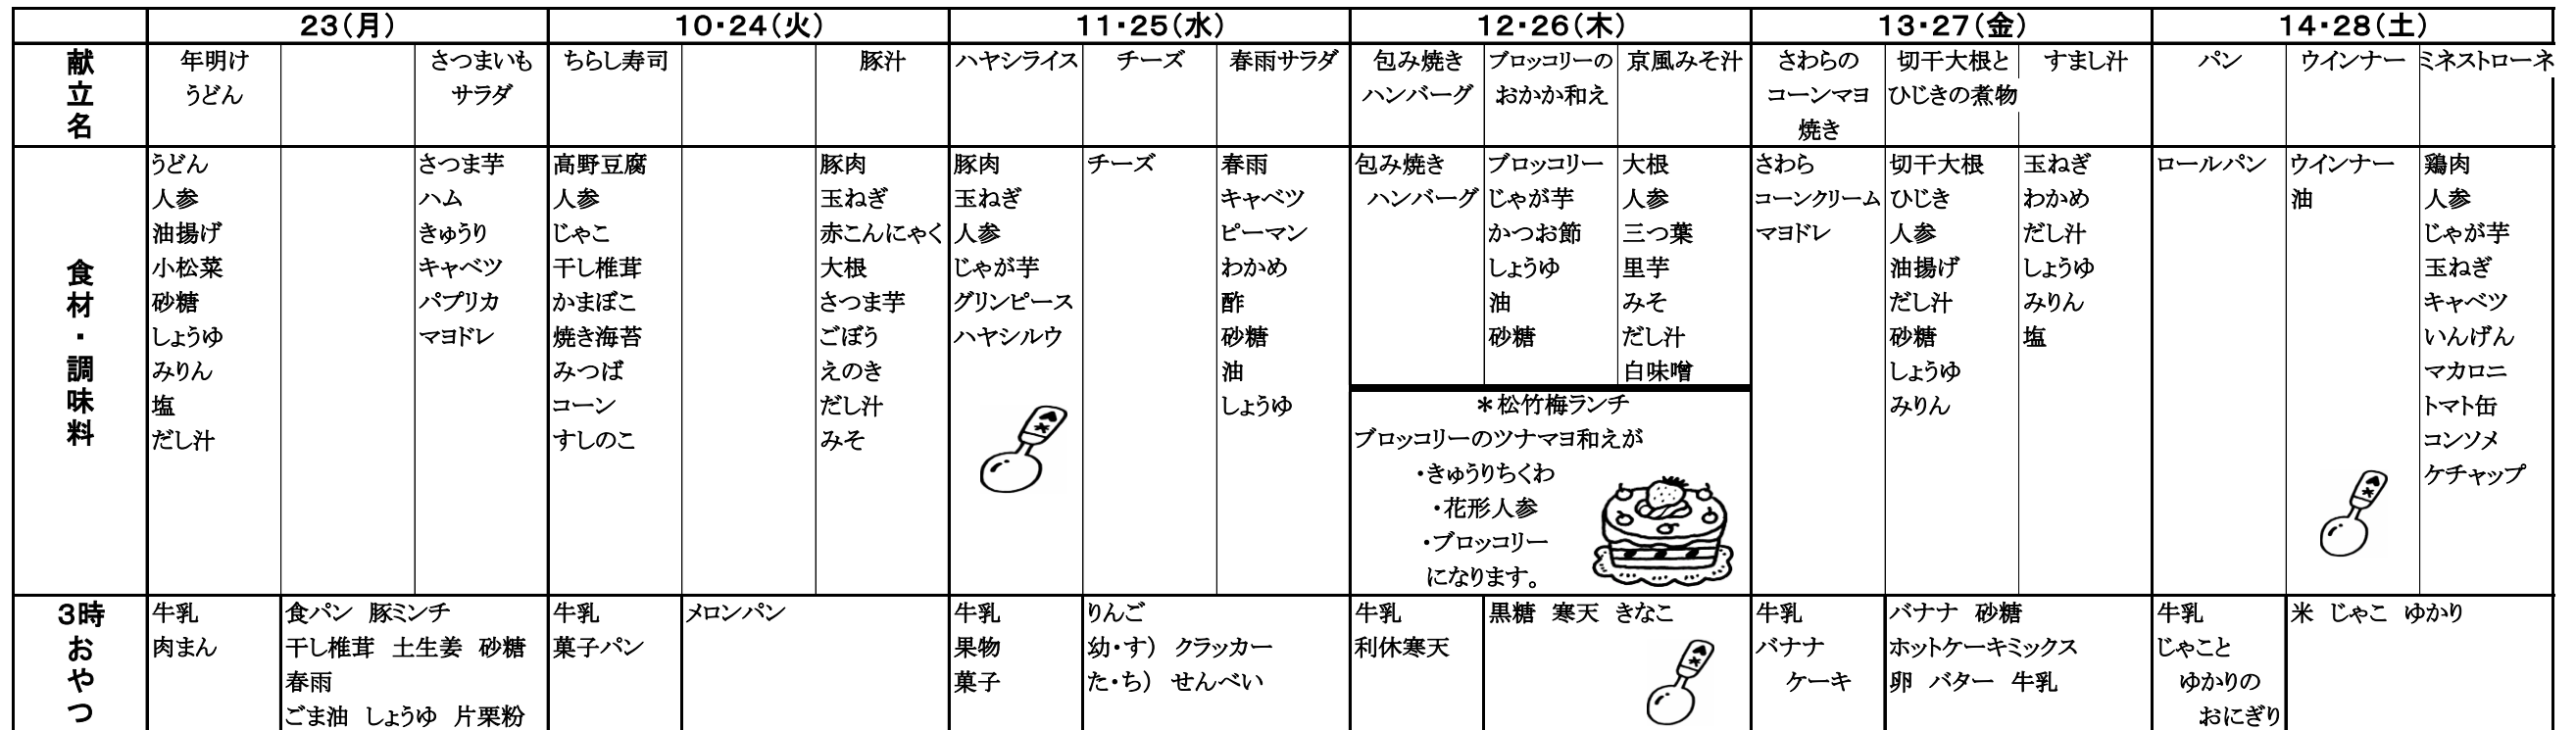 23(月) 10・24(火) 11・25(水) 12・26(木) 13・27(金) 14・28(土)
献立名
年明け
うどん
さつまいも
サラダ
ちらし寿司
豚汁
ハヤシライス
チーズ
春雨サラダ
包み焼き
ハンバーグ
ブロッコリーの
おかか和え
京風みそ汁
さわらの
コーンマヨ
焼き
切干大根と
ひじきの煮物
すまし汁
パン
ウインナー
ミネストローネ
食材・調味料
うどん
人参
油揚げ
小松菜
砂糖
しょうゆ
みりん
塩
だし汁
さつま芋
ハム
きゅうり
キャベツ
パプリカ
マヨドレ
高野豆腐
人参
じゃこ
干し椎茸
かまぼこ
焼き海苔
みつば
コーン
すしのこ
豚肉
玉ねぎ
赤こんにゃく
大根
さつま芋
ごぼう
えのき
だし汁
みそ
豚肉
玉ねぎ
人参
じゃが芋
グリンピース
ハヤシルウ
チーズ
春雨
キャベツ
ピーマン
わかめ
酢
砂糖
油
しょうゆ
包み焼き
ハンバーグ
ブロッコリー
じゃが芋
かつお節
しょうゆ
油
砂糖
大根
人参
三つ葉
里芋
みそ
だし汁
白味噌
＊松竹梅ランチ
ブロッコリーのツナマヨ和えが
・きゅうりちくわ
・花形人参
・ブロッコリー
になります。
さわら
コーンクリーム
マヨドレ
切干大根
ひじき
人参
油揚げ
だし汁
砂糖
しょうゆ
みりん
玉ねぎ
わかめ
だし汁
しょうゆ
みりん
塩
ロールパン
ウインナー
油
鶏肉
人参
じゃが芋
玉ねぎ
キャベツ
いんげん
マカロニ
トマト缶
コンソメ
ケチャップ
3時おやつ
牛乳
肉まん
食パン 豚ミンチ
干し椎茸 土生姜 砂糖
春雨
ごま油 しょうゆ 片栗粉
牛乳
菓子パン
メロンパン
牛乳
果物
菓子
りんご
幼・す) クラッカー
た・ち) せんべい
牛乳
利休寒天
黒糖 寒天 きなこ
牛乳
バナナ
ケーキ
バナナ 砂糖
ホットケーキミックス
卵 バター 牛乳
牛乳
じゃこと
ゆかりの
おにぎり
米 じゃこ ゆかり